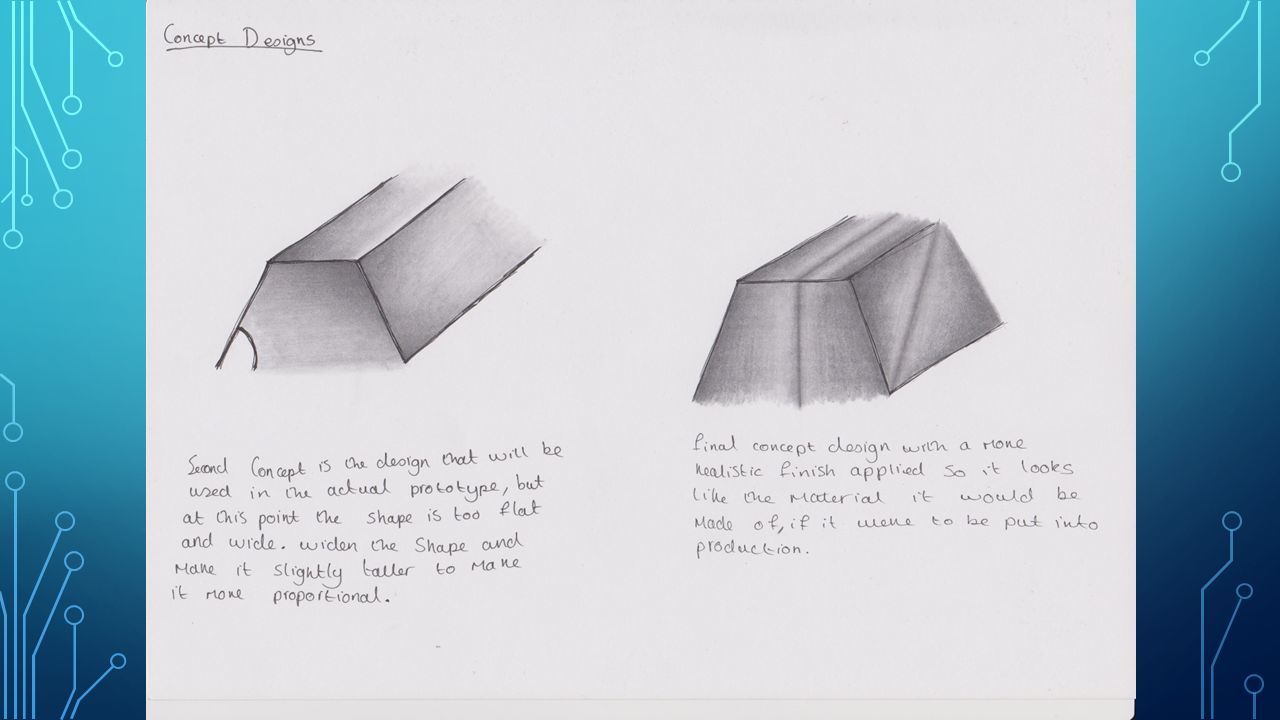 Concept Designs
Second Concept is the design that will be
used in the actual prototype, but
at this point the shape is too flat
and wide. widen the shape and
make it slightly taller to make
it more proportional.
final concept design with a more
realistic finish applied so it looks
like the material it would be
made of, if it were to be put into
production.